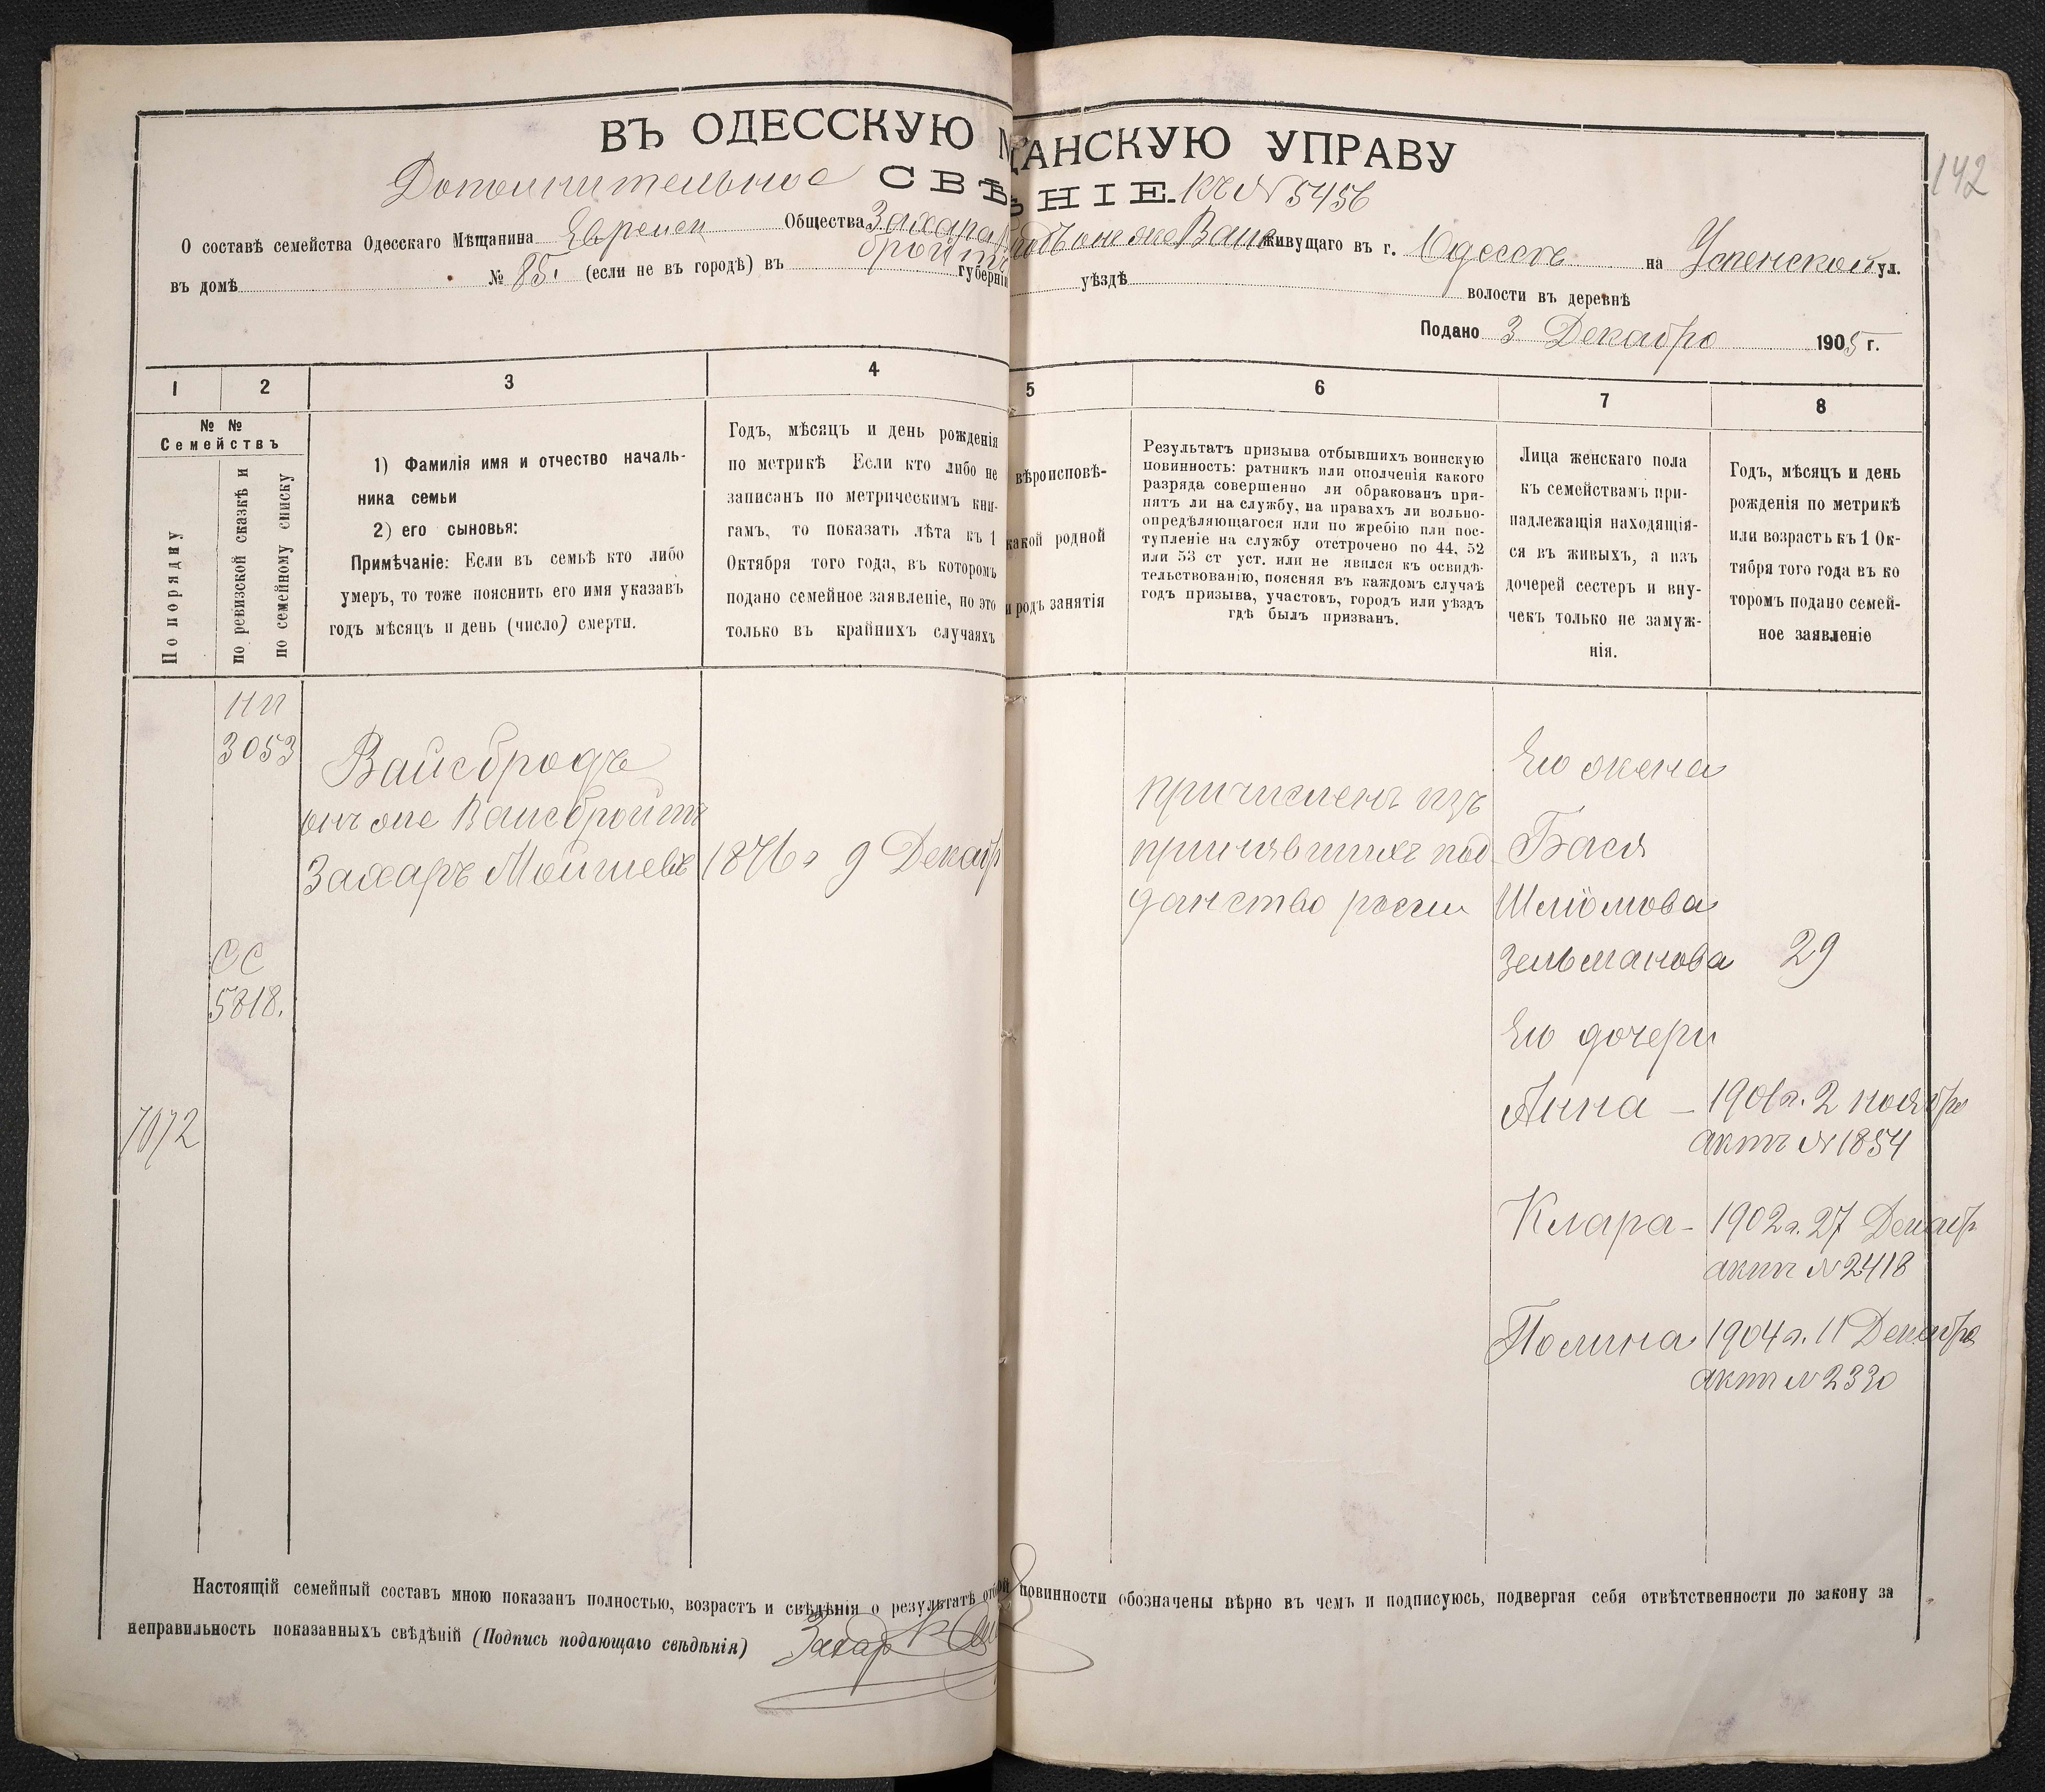 142
ВЪ ОДЕССКУЮ М ЩАНСКУЮ УПРАВУ
Дополнительное СВѢ ѢНІЕ. къ № 5456
О составѣ семейства Одесскаго Мѣщанина Евреиск Общества Захара онъ же Вайс живущаго въ г. Одессѣ на Успенской ул.
бройтъ
въ домѣ № 85. (если не въ городѣ) въ губерніи уѣздѣ волости въ деревнѣ
Подано 3 Декабря 1905 г.
1 2 3 4 5 6 7 8
№ №
Семействъ
По порядку
по ревизской сказкѣ и
по семейному списку
1) Фамилія имя и отчество началь-
ника семьи
2) его сыновья:
Примѣчаніе: Если въ семьѣ кто либо
умеръ, то тоже пояснить его имя указавъ
годъ мѣсяцъ и день (число) смерти.
Годъ, мѣсяцъ и день рожденія
по метрикѣ Если кто либо не
записанъ по метрическимъ кни-
гамъ, то показать лѣта къ 1
Октября того года, въ которомъ
подано семейное заявленіе, но это
только въ крайнихъ случаяхъ
вѣроисповѣ-
какой родной
и родъ занятія
Результатъ призыва отбывшихъ воинскую
повинность: ратникъ или ополченія какого
разряда совершенно ли обракованъ при-
нятъ ли на службу, на правахъ ли вольно-
опредѣляющагося или по жребію или пос-
тупленіе на службу отстрочено по 44, 52
или 53 ст уст. или не явился къ освидѣ-
тельствованію, поясняя въ каждомъ случаѣ
годъ призыва, участокъ, городъ или уѣздъ
гдѣ былъ призванъ.
Лица женскаго пола
къ семействамъ при-
надлежащія находящій-
ся въ живыхъ, а изъ
дочерей сестеръ и вну-
чекъ только не замуж-
нія.
Годъ, мѣсяцъ и день
рожденія по метрикѣ
или возрастъ къ 1 Ок-
тября того года въ ко
торомъ подано семей-
ное заявленіе
НП
3053
СС
5818.
7072
Вайсбродъ
онъ же Вайсбройтъ
Захаръ Мойшевъ
1876 г 9 Декабр
причисленъ изъ
принявшихъ под
данство россіи
Его жена
Бася
Шліомова
Зельманова 29
Его дочери
Анна – 1901 г. 2 ноября
актъ № 1854
Клара – 1902 г. 27 Декабр
актъ № 2418
Полина 1904 г. 11 Декабря
актъ № 2330
Настоящій семейный составъ мною показанъ полностью, возрастъ и свѣдѣнія о результатѣ отб ой повинности обозначены вѣрно въ чемъ и подписуюсь, подвергая себя отвѣтственности по закону за
неправильность показанныхъ свѣдѣній (Подпись подающаго свѣдѣнія) Захар